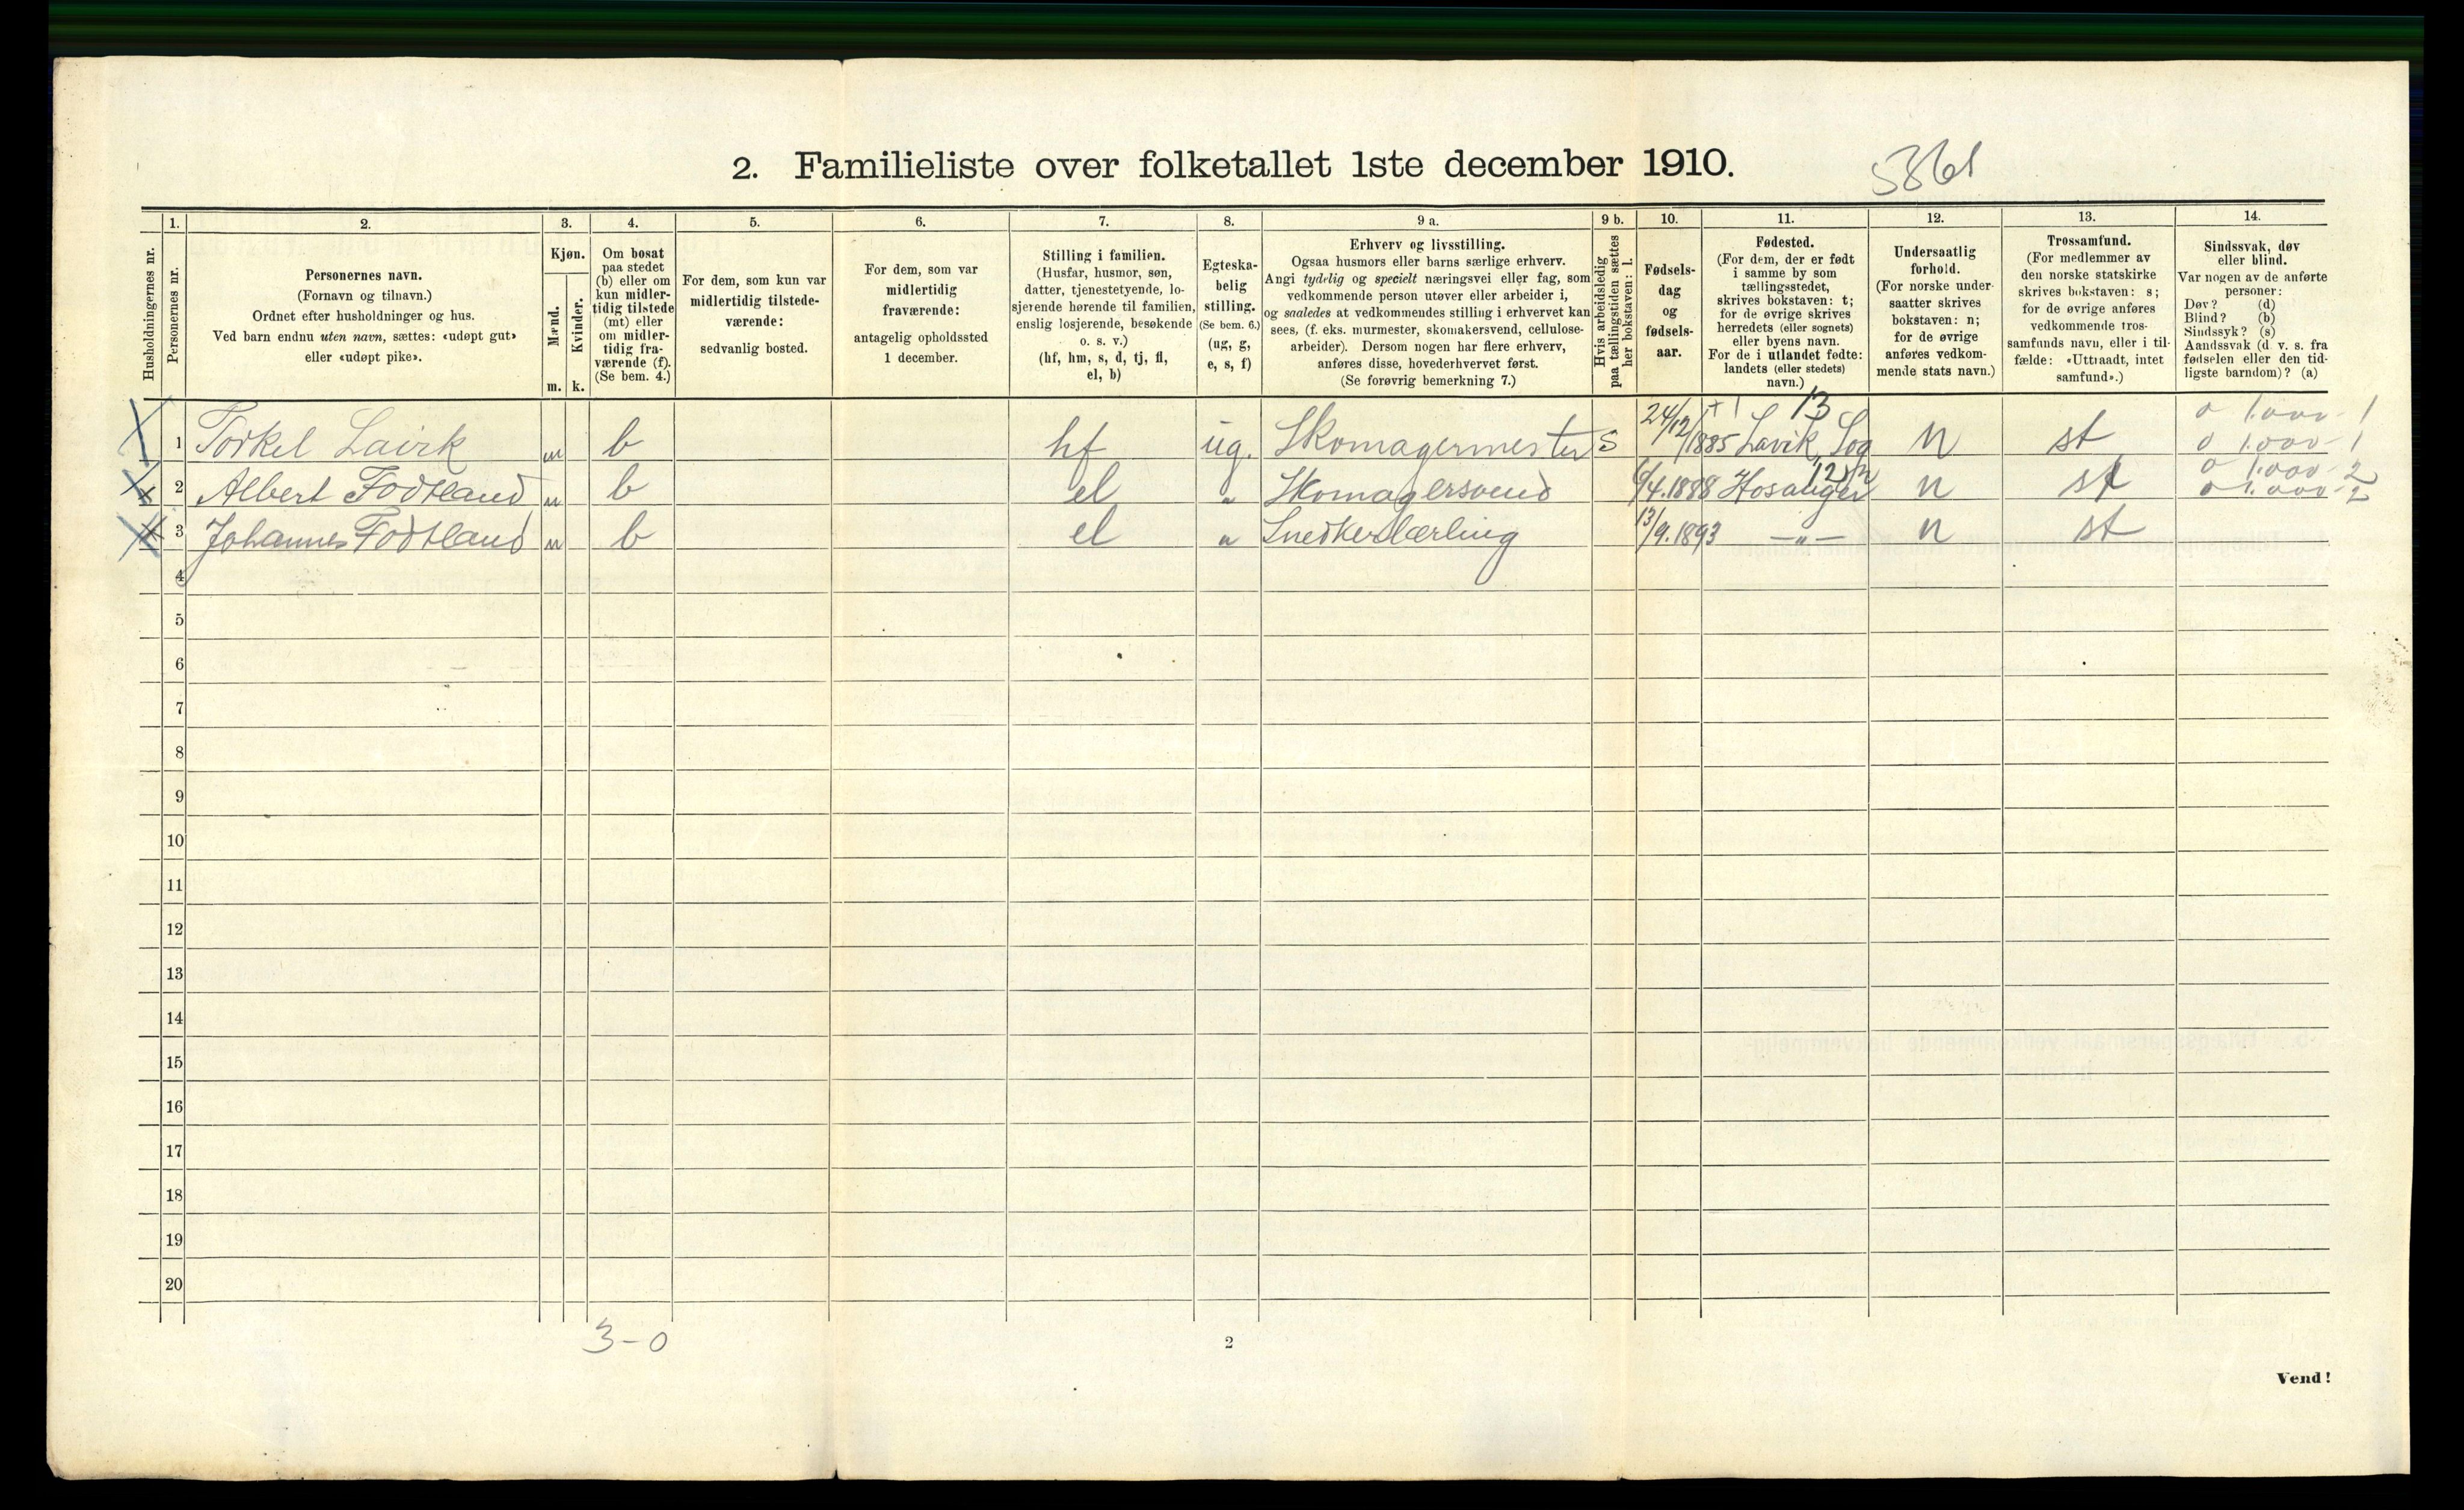 2. Familieliste over folketallet 1ste december 1910.
Husholdningernes nr.
1.
Personernes nr.
2.
Personernes navn.
(Fornavn og tilnavn.)
Ordnet efter husholdninger og hus.
Ved barn endnu uten navn, sættes: «udøpt gut»
eller «udøpt pike».
3.
Kjøn.
Mænd.
Kvinder.
m. k.
4.
Om bosat
paa stedet
(b) eller om
kun midler-
tidig tilstede
(mt) eller
om midler-
tidig fra-
værende (f).
(Se bem. 4.)
5.
For dem, som kun var
midlertidig tilstede-
værende:
sedvanlig bosted.
6.
For dem, som var
midlertidig
fraværende:
antagelig opholdssted
1 december.
7.
Stilling i familien.
(Husfar, husmor, søn,
datter, tjenestetyende, lo-
sjerende hørende til familien,
enslig losjerende, besøkende
o. s. v.)
(hf, hm, s, d, tj, fl,
el, b)
8.
Egteska-
belig
stilling.
(Se bem. 6.)
(ug, g,
e, s, f)
9 a.
Erhverv og livsstilling.
Ogsaa husmors eller barns særlige erhverv.
Angi tydelig og specielt næringsvei eller fag, som
vedkommende person utøver eller arbeider i,
og saaledes at vedkommendes stilling i erhvervet kan
sees, (f. eks. murmester, skomakersvend, cellulose-
arbeider). Dersom nogen har flere erhverv,
anføres disse, hovederhvervet først.
(Se forøvrig bemerkning 7.)
9 b.
Hvis arbeidsledig
paa tællingstiden sættes
her bokstaven: l.
10.
Fødsels-
dag
og
fødsels-
aar.
11.
Fødested.
(For dem, der er født
i samme by som
tællingsstedet,
skrives bokstaven: t;
for de øvrige skrives
herredets (eller sognets)
eller byens navn.
For de i utlandet fødte:
landets (eller stedets)
navn.)
12.
Undersaatlig
forhold.
(For norske under-
saatter skrives
bokstaven: n;
for de øvrige
anføres vedkom-
mende stats navn.)
13.
Trossamfund.
(For medlemmer av
den norske statskirke
skrives bokstaven: s;
for de øvrige anføres
vedkommende tros-
samfunds navn, eller i til-
fælde: «Uttraadt, intet
samfund».)
14.
Sindssvak, døv
eller blind.
Var nogen av de anførte
personer:
Døv? (d)
Blind? (b)
Sindssyk? (s)
Aandssvak (d. v. s. fra
fødselen eller den tid-
ligste barndom)? (a)
13
0 1.000 - 1
1 Torkel Lavik m b hf ug. Skomagermester S 24/12/1885 Lavik, Sog n st 0 1.000 - 1
12 0 1.000 - 2
2 Albert Fodtland m b el " Skomagersvend 6/4.1888 Hosanger n st 0 1.000 - 2
3 Johannes Fodtland m b el " Snedkerlærling 13/9.1893 —"— n st
4
5
6
7
8
9
10
11
12
13
14
15
16
17
18
19
20
3-0
2
Vend!